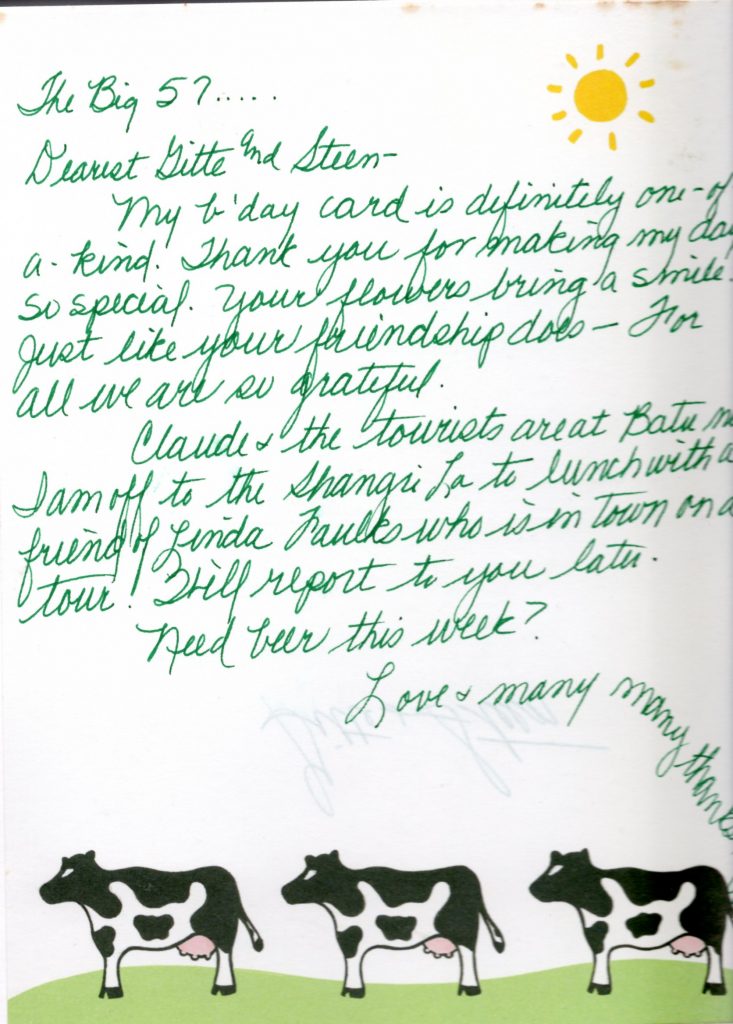 The Big 57.....
Dearest Gitte and Steen-
My b'day card is definitely one-of
a-kind. Thank you for making my day
so special. Your flowers bring a smile.
Just like your friendship does - For
all we are so grateful.
Claude & the tourists are at Batu
I am off to the Shangri La to lunch with a
friend of Linda Faulks who is in town on a
tour! I'll report to you later.
Need beer this week?
Love & many many thanks